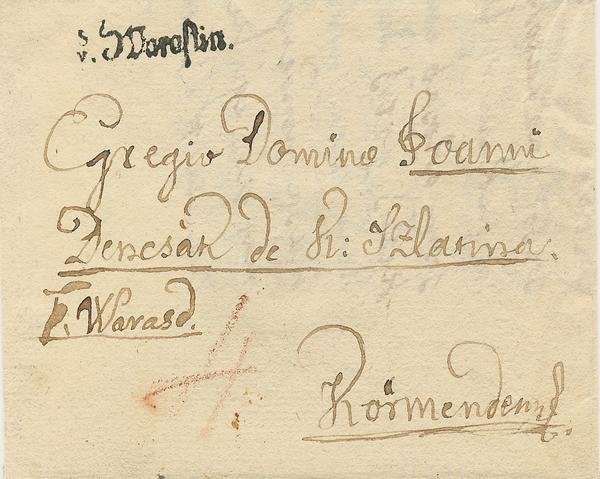 v. Warastin.
Egregio Domino Joanni
Dencsàk de K: SZlatina.
p. Warasd.
4
Körmendenn